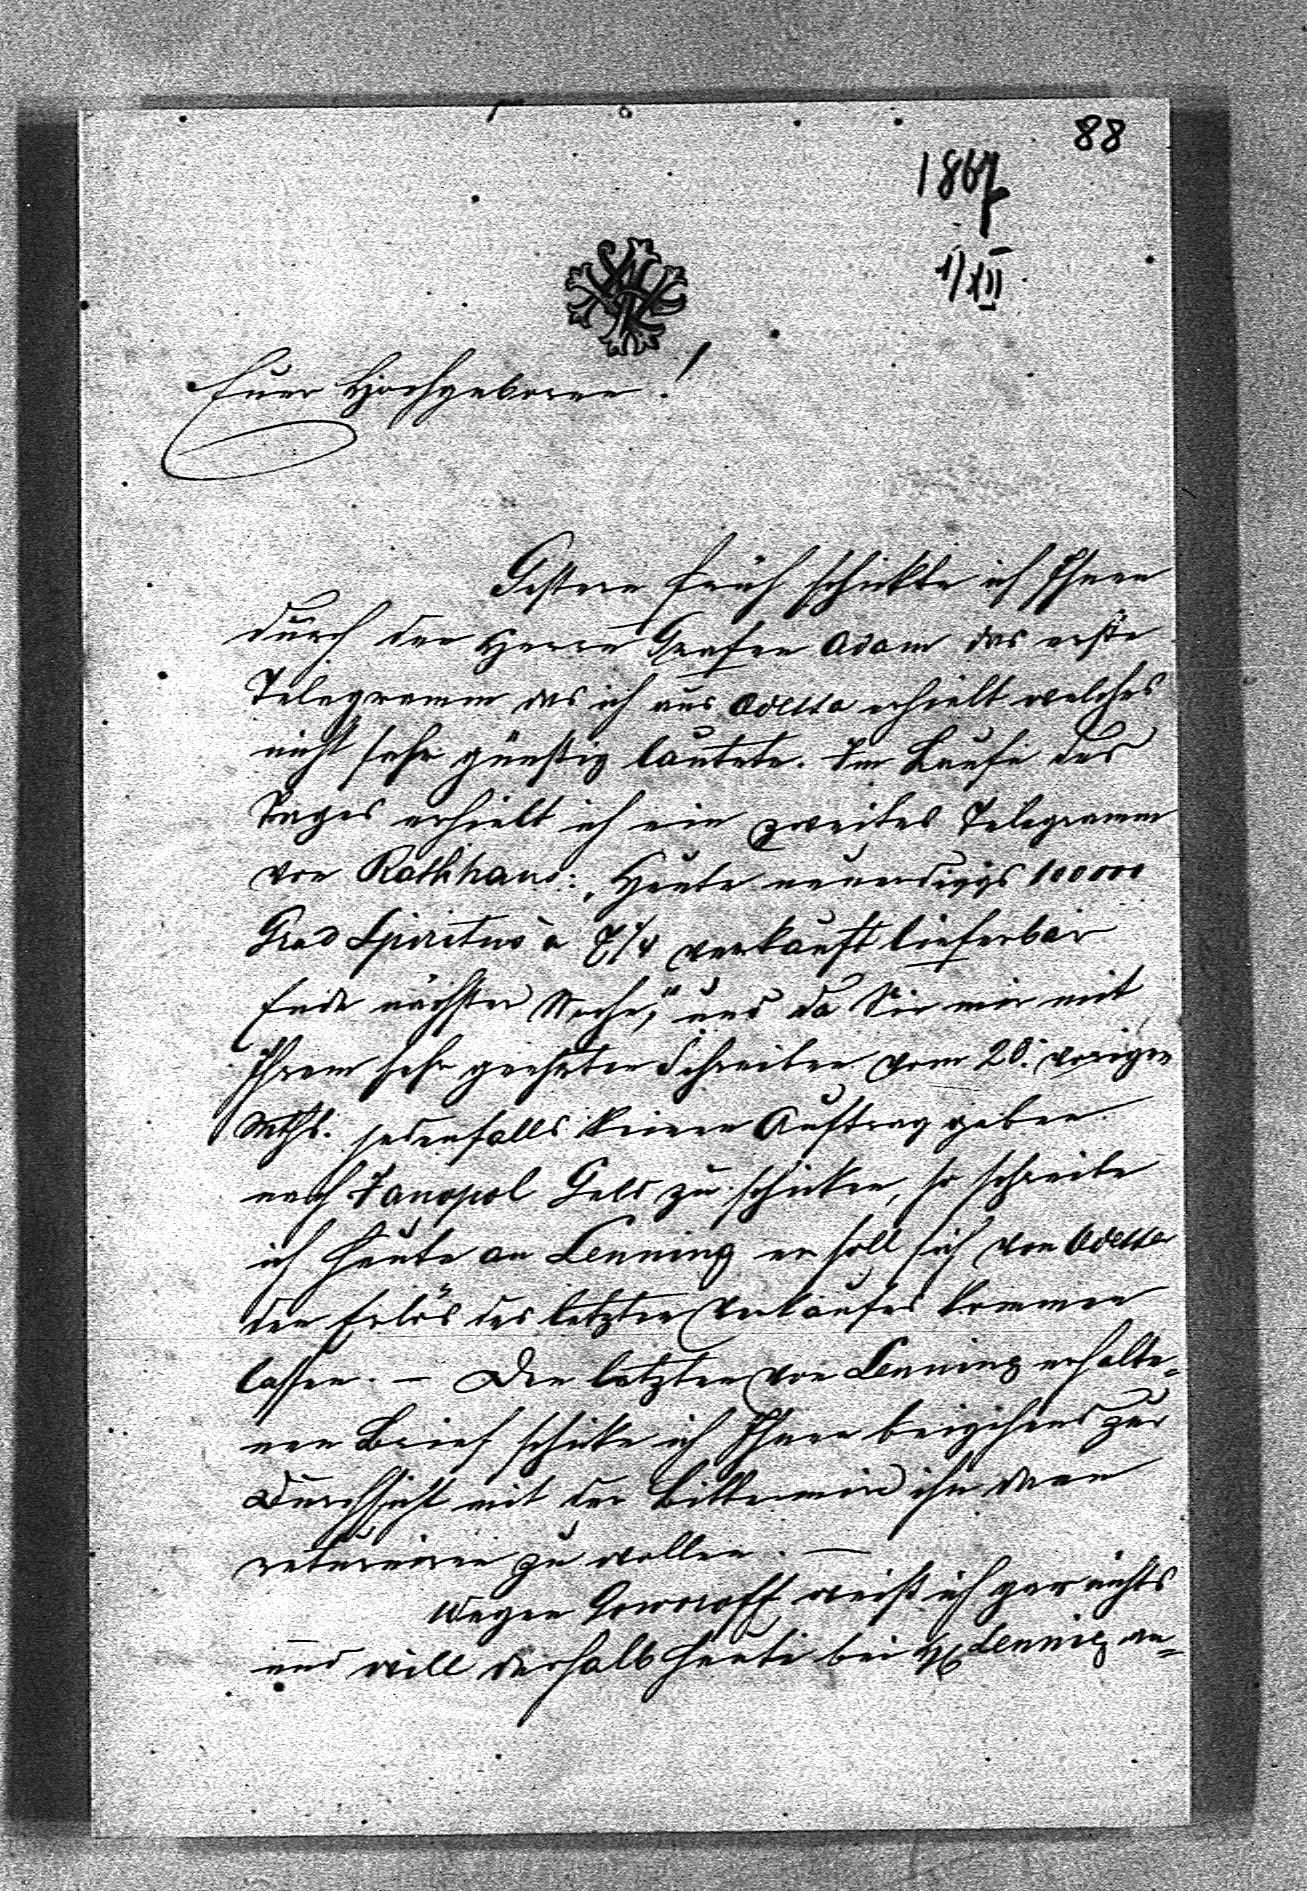 88
1867
1/XII
Euer Hochgeboren!
Gestern früh schickte ich Ihnen
durch den Herrn Grafen Adam das erste
Telegramm das ich aus Odessa erhielt welches
nicht sehr günstig lautete. Im Laufe des
Tages erhielt ich ein zweites Telegramm
von Rothhand: „Heute neuerdings 100000
Grad Spiritus à 7 1/4 verkauft lieferbar
Ende nächster Woche," und da Sie mir mit
Ihrem sehr geehrten Schreiben vom 20. vorigen
Mths. jedenfalls keinen Auftrag geben
nach Janopol Geld zu schicken, so schreibe
ich heute an Lenning er soll sich von Odessa
den Erlös des letzten Verkaufes kommen
lassen. – Den letzten von Lenning erhalte-
nen Brief schicke ich Ihnen beigehend zur
Durchsicht mit der Bitte mir ihn dann
returniren zu wollen. —
Wegen Goworoff weiß ich gar nichts
und will deshalb heute bei H Lenning an-